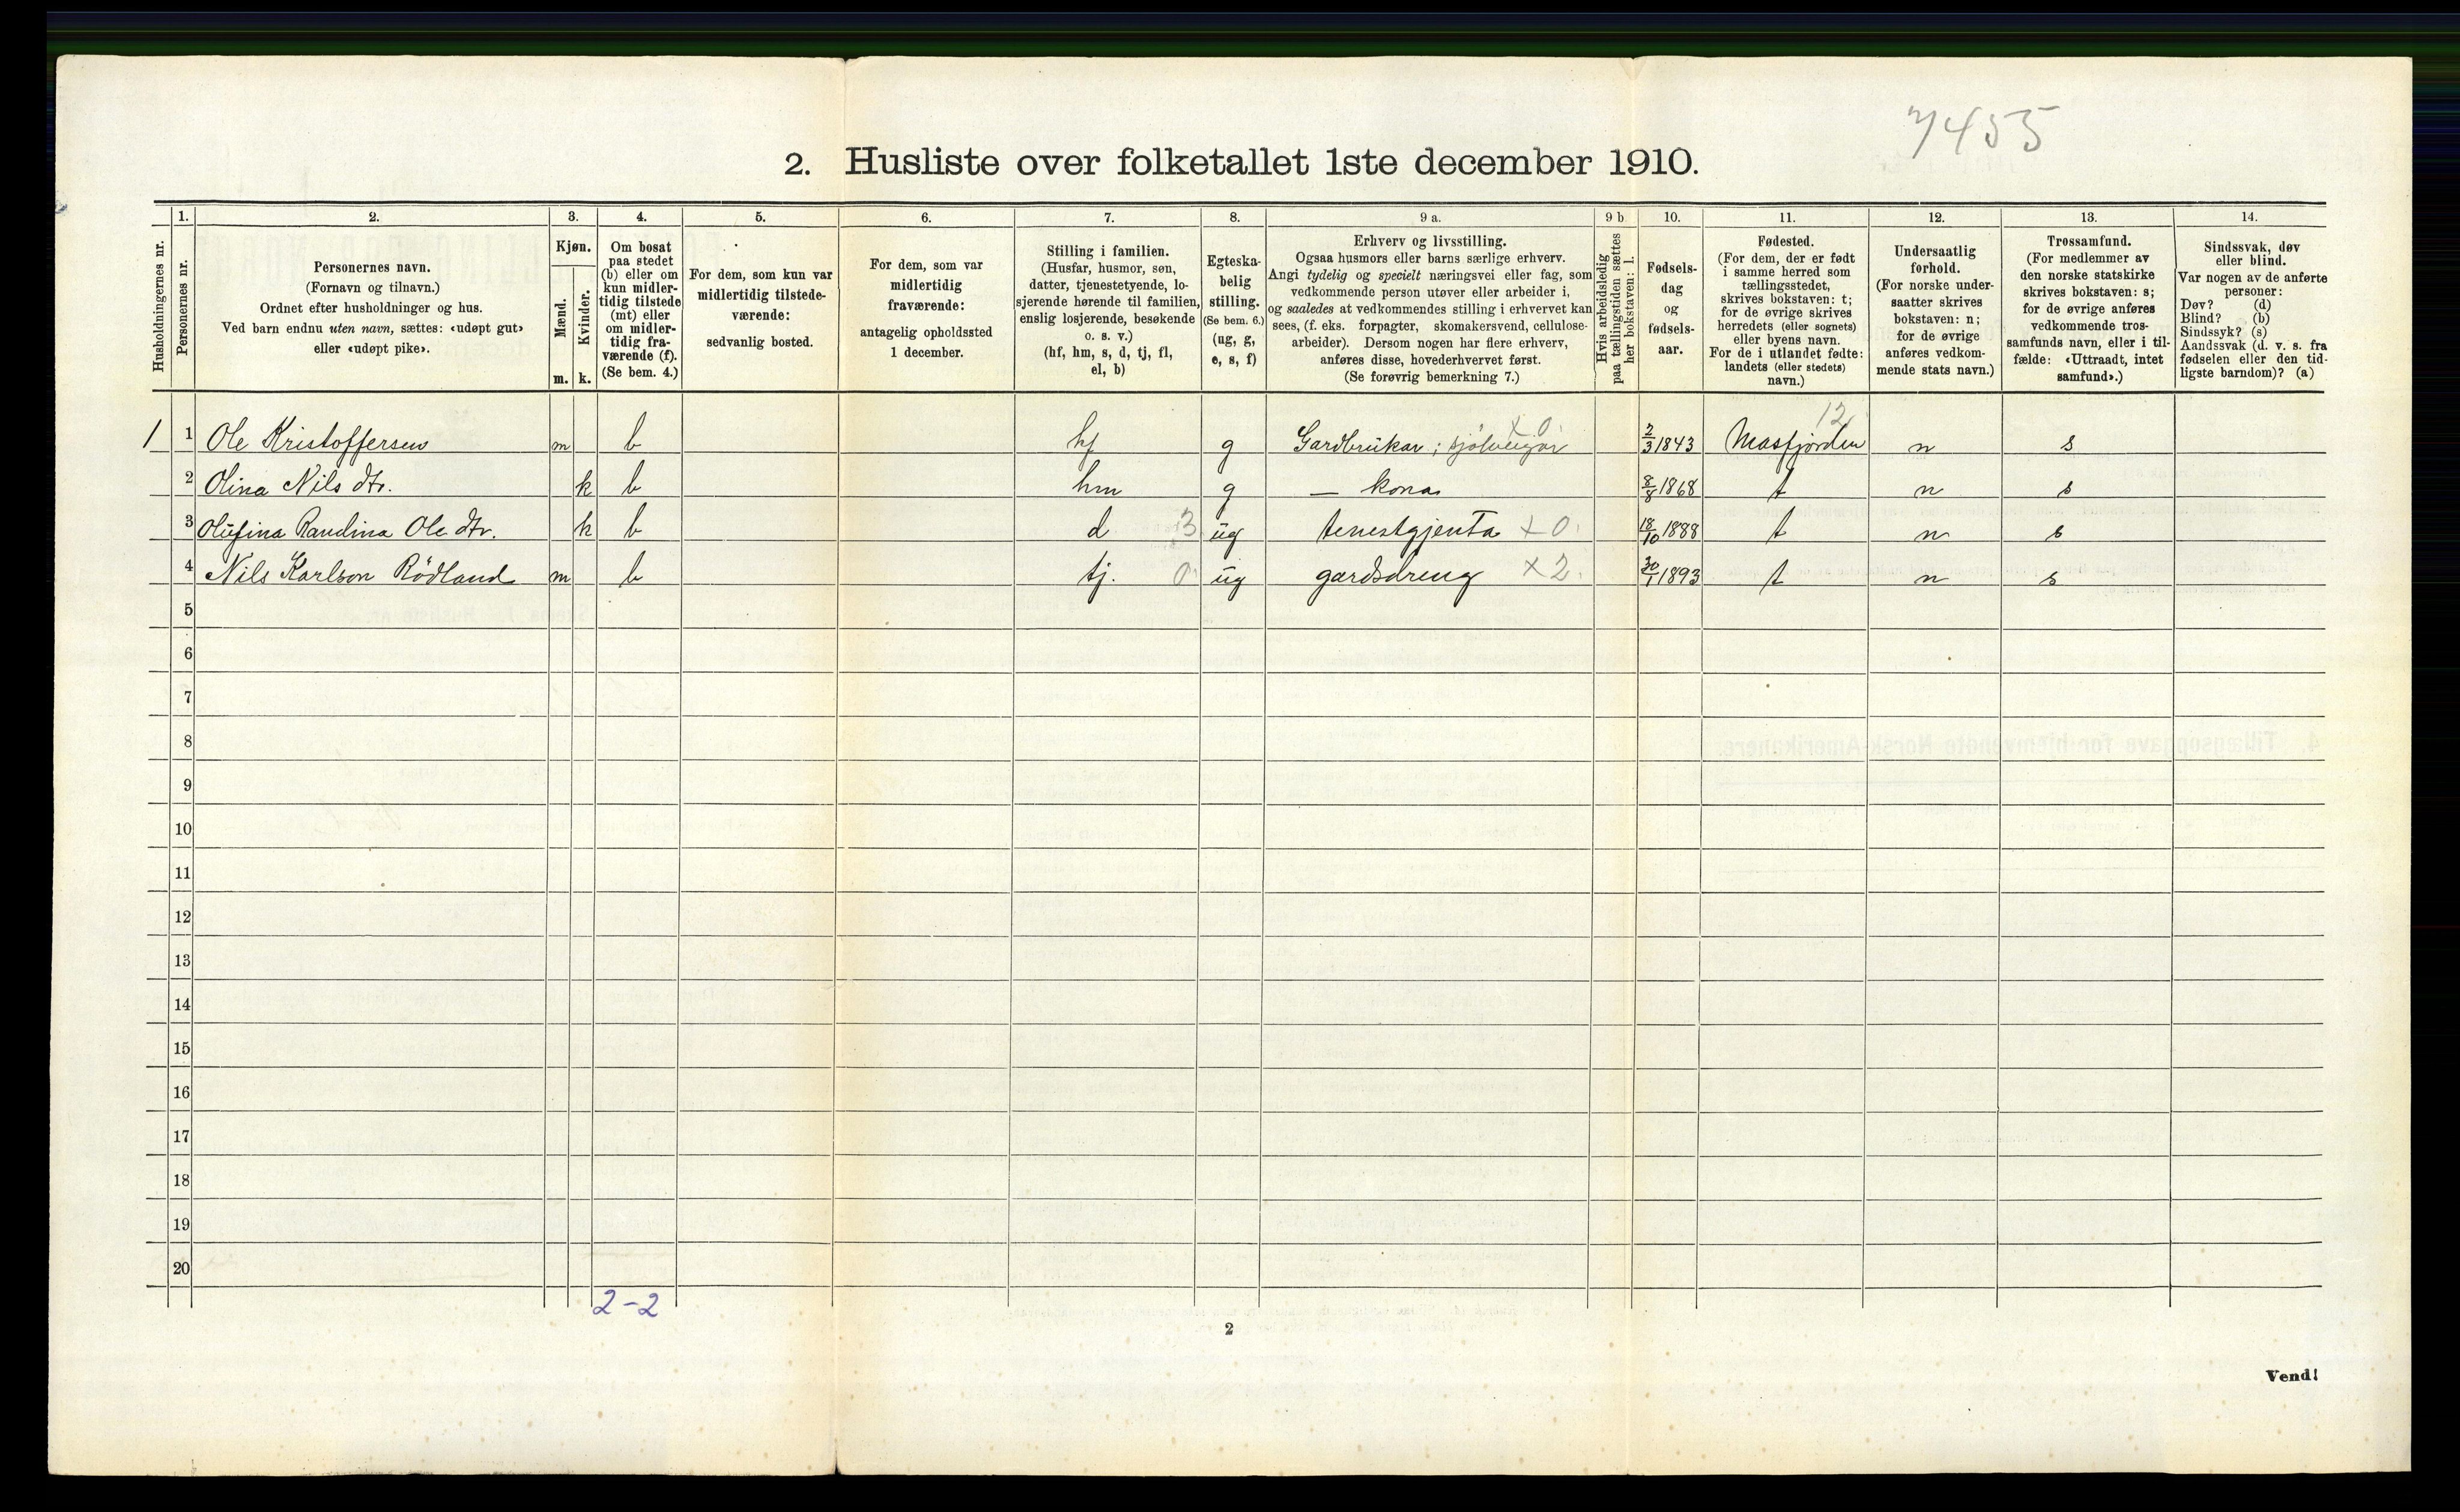 7455
2. Husliste over folketallet 1ste december 1910.
1. 2. 3. 4. 5. 6. 7. 8. 9 a. 9 b 10. 11. 12. 13. 14.
Husholdningernes nr.
Personernes nr.
Personernes navn.
(Fornavn og tilnavn.)
Ordnet efter husholdninger og hus.
Ved barn endnu uten navn, sættes: «udøpt gut»
eller «udøpt pike».
Kjøn.
Mænd.
Kvinder.
m. k.
Om bosat
paa stedet
(b) eller om
kun midler-
tidig tilstede
(mt) eller
om midler-
tidig fra-
værende (f).
(Se bem. 4.)
For dem, som kun var
midlertidig tilstede-
værende:
sedvanlig bosted.
For dem, som var
midlertidig
fraværende:
antagelig opholdssted
1 december.
Stilling i familien.
(Husfar, husmor, søn,
datter, tjenestetyende, lo-
sjerende hørende til familien,
enslig losjerende, besøkende
o. s. v.)
(hf, hm, s, d, tj, fl,
el, b)
Egteska-
belig
stilling.
(Se bem. 6.)
(ug, g,
e, s, f)
Erhverv og livsstilling.
Ogsaa husmors eller barns særlige erhverv.
Angi tydelig og specielt næringsvei eller fag, som
vedkommende person utøver eller arbeider i,
og saaledes at vedkommendes stilling i erhvervet kan
sees, (f. eks. forpagter, skomakersvend, cellulose-
arbeider). Dersom nogen har flere erhverv,
anføres disse, hovederhvervet først.
(Se forøvrig bemerkning 7.)
Hvis arbeidsledig
paa tællingstiden sættes
her bokstaven: l.
Fødsels-
dag
og
fødsels-
aar.
Fødested.
(For dem, der er født
i samme herred som
tællingsstedet,
skrives bokstaven: t;
for de øvrige skrives
herredets (eller sognets)
eller byens navn.
For de i utlandet fødte:
landets (eller stedets)
navn.)
Undersaatlig
forhold.
(For norske under-
saatter skrives
bokstaven: n;
for de øvrige
anføres vedkom-
mende stats navn.)
Trossamfund.
(For medlemmer av
den norske statskirke
skrives bokstaven: s;
for de øvrige anføres
vedkommende tros-
samfunds navn, eller i til-
fælde: «Uttraadt, intet
samfund».)
Sindssvak, døv
eller blind.
Var nogen av de anførte
personer:
Døv? (d)
Blind? (b)
Sindssyk? (s)
Aandssvak (d. v. s. fra
fødselen eller den tid-
ligste barndom)? (a)
x 0 12
1 1 Ole Kristoffersen m b hf g Gardbrukar; sjølveigar 2/3 1843 Masfjorden n s
2 Olina Nils dtr. k b hm g — kona 8/8 1868 t n s
3 Olufina Randina Ole dtr. k b d 3 ug tenestgjenta x 0 18/10 1888 t n s
4 Nils Karlson Rödland m b tj. 0 ug gardsdreng x 2 30/1 1893 t n s
5
6
7
8
9
10
11
12
13
14
15
16
17
18
19
20
2-2
2
Vend!